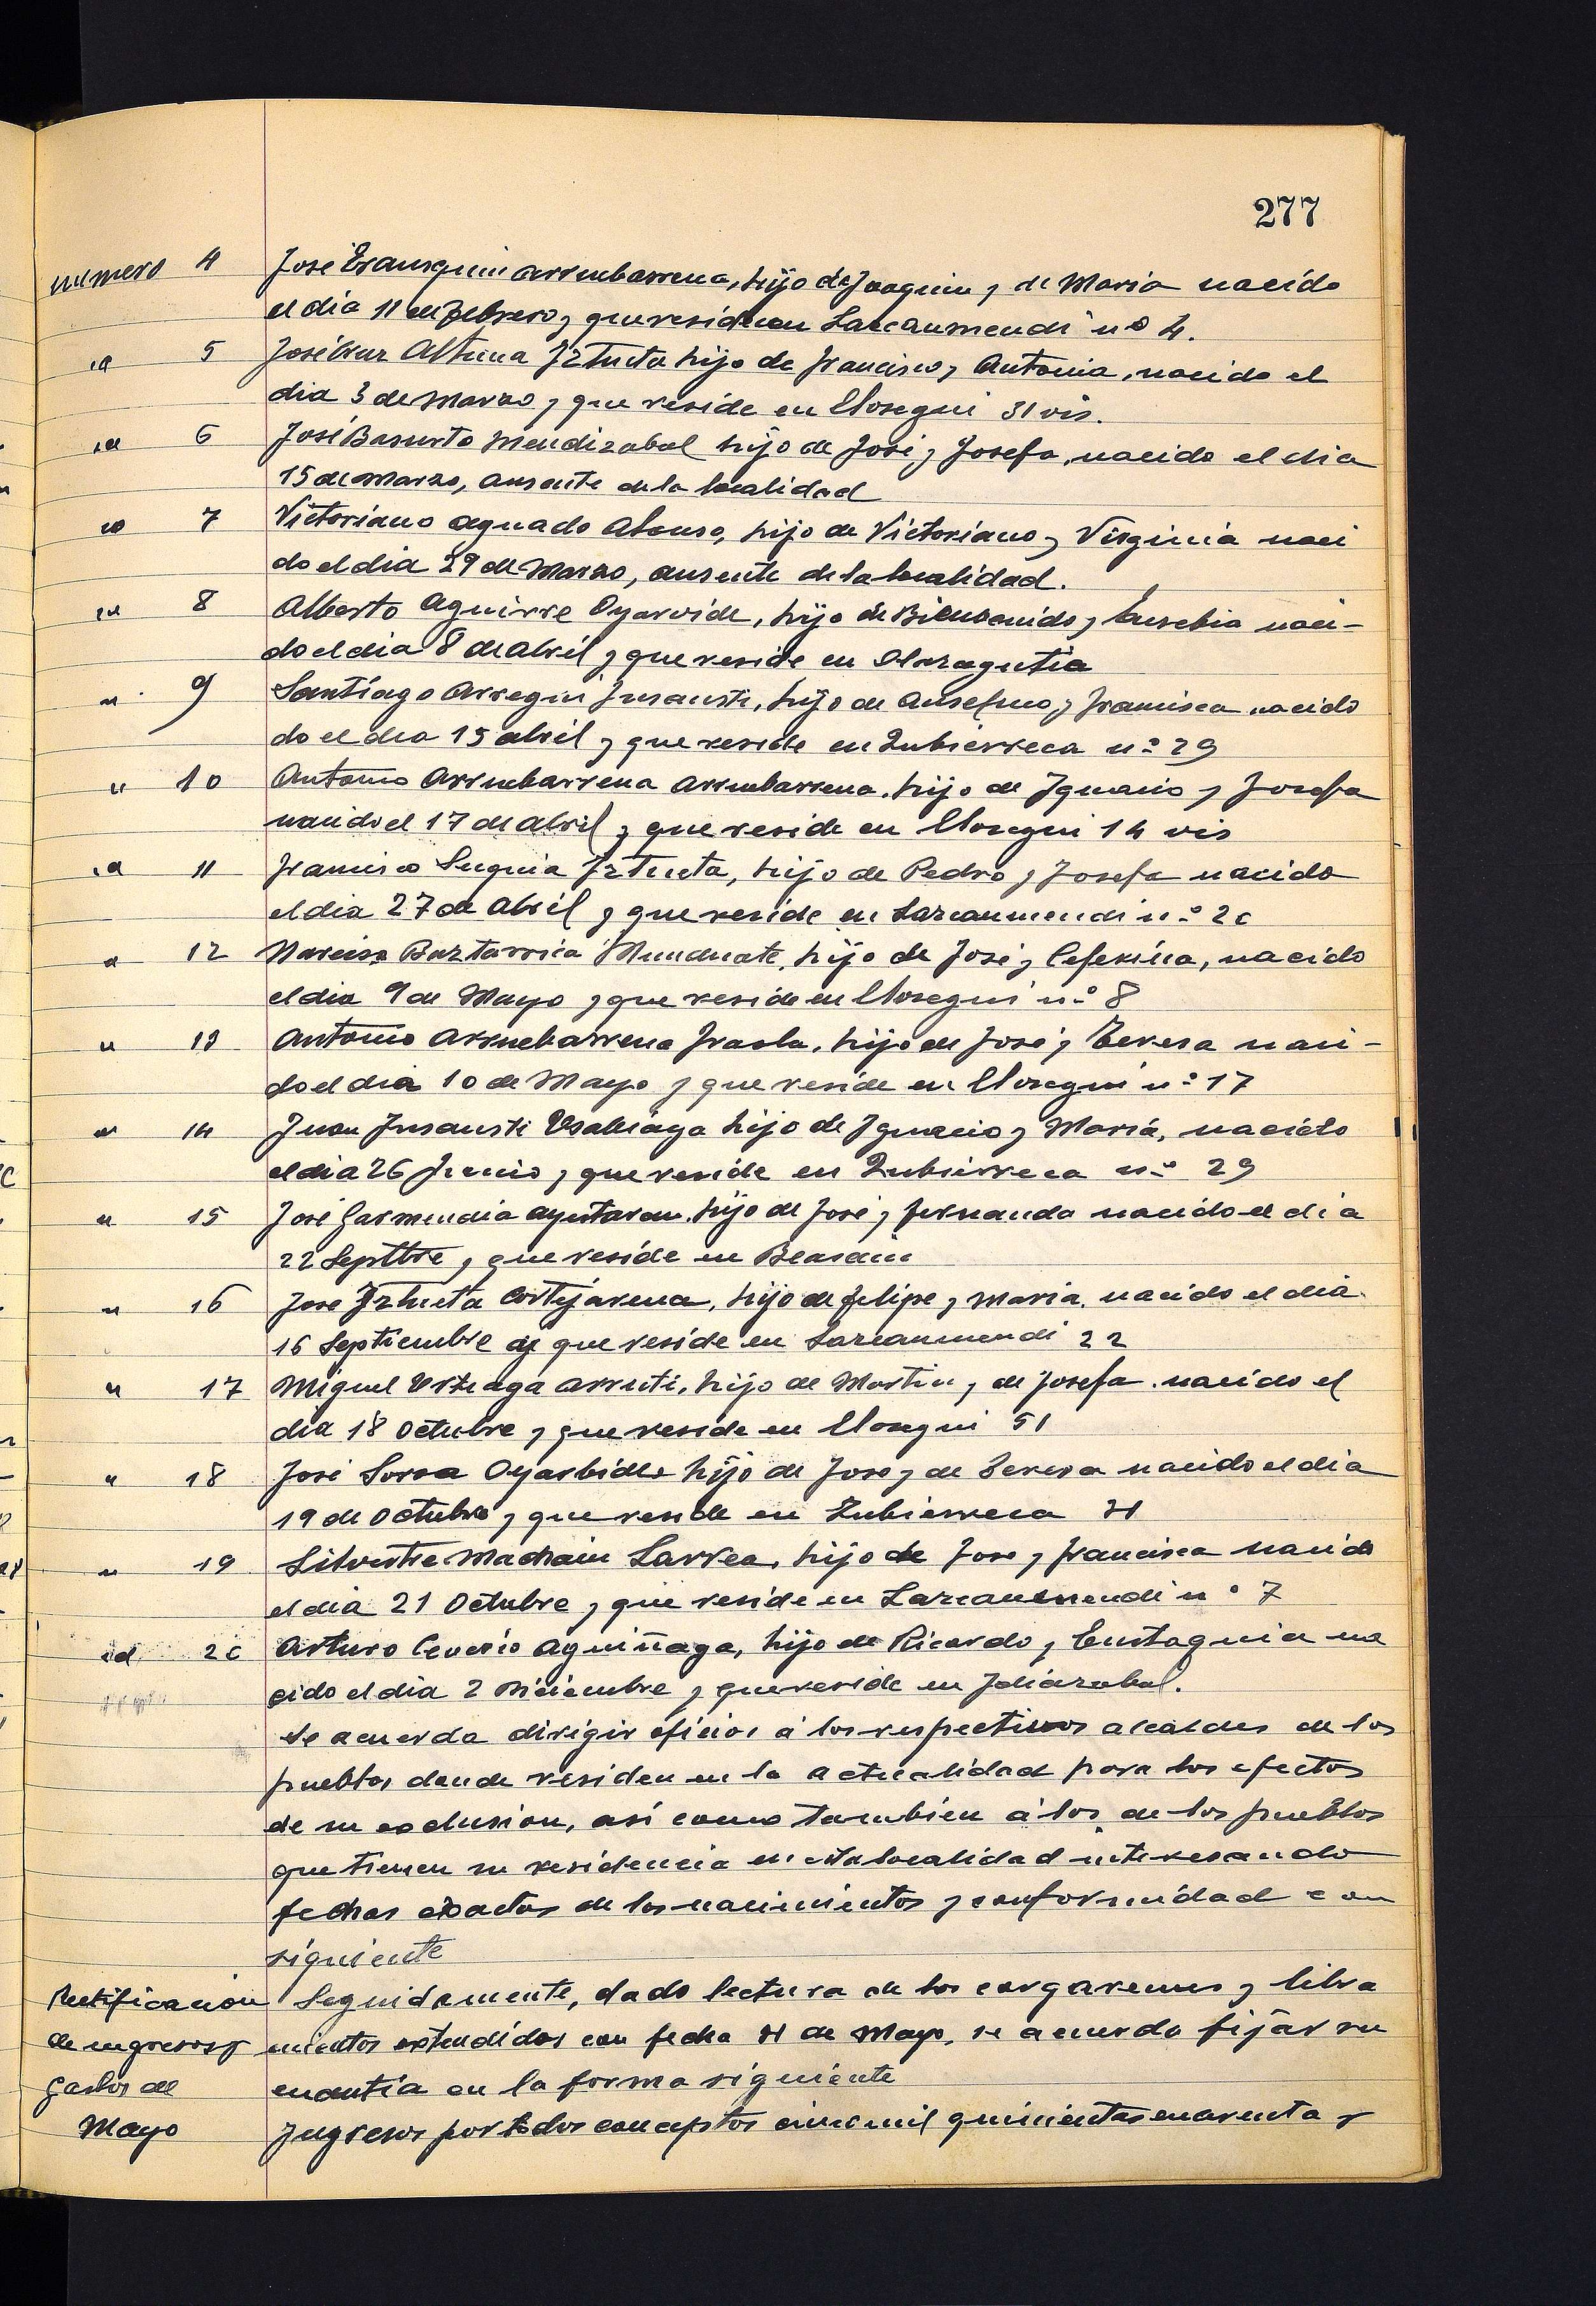 277
numero 4 José Esausquin Arrubarrena, hijo de Joaquin y de Maria nacido
el dia 11 de Febrero y que reside en Lazcaumendi nº 4.
id 5 José Altuna Iztueta hijo de Francisco y Antonia, nacido el
dia 3 de Marzo y que reside en Elosegui 31 vis.
id 6 José Basurto Mendizabal hijo de José y Josefa, nacido el dia
15 de Marzo, ausente de la localidad
id 7 Victoriano Aguado Alonso, hijo de Victoriano y Virginia naci
do el dia 29 de Marzo, ausente de la localidad.
id 8 Alberto Aguirre Oyarvide, hijo de Bienvenido y Eusebia naci-
do el dia 8 de Abril y que reside en Olazagutia
" 9 Santiago Arregui Insausti, hijo de Anselmo y Francisca nacido
do el dia 15 abril y que reside en Zubierreca nº 29
" 10 Antonio Arrubarrena Arrubarrena, hijo de Ignacio y Josefa
nacido el 17 de Abril y que reside en Elosegui 14 vis
id 11 Francisco Suquia Iztueta, hijo de Pedro y Josefa nacido
el dia 27 de Abril y que reside en Lazcaumendi nº 20
" 12 Narciso Baztarrica Munduate, hijo de José y Ceferina, nacido
el dia 9 de Mayo y que reside en Elosegui nº 8
" 13 Antonio Arruebarrena Iraola, hijo de José y Teresa naci-
do el dia 10 de Mayo y que reside en Elosegui nº 17
" 14 Juan Insausti Usabiaga hijo de Ignacio y Maria, nacido
el dia 26 Junio y que reside en Zubierreca nº 29
" 15 José Garmendia Ayestaran, hijo de José y Fernanda nacido el dia
22 Septbre y que reside en Beasain
" 16 Jose Iztueta Cortajarena, hijo de Felipe y Maria, nacido el dia
16 Septiembre y que reside en Lazcaumendi 22
" 17 Miguel Urteaga Arruti, hijo de Martin y de Josefa nacido el
dia 18 Octubre y que reside en Elosegui 51
" 18 José Soroa Oyarbide hijo de Jose y de Teresa nacido el dia
19 de Octubre y que reside en Zubierreca 31
" 19 Silvestre Machain Larrea, hijo de Jose y Francisca nacido
el dia 21 Octubre y que reside en Lazcaumendi nº 7
id 20 Arturo Ceverio Aguiñaga, hijo de Ricardo y Eustaquia na
cido el dia 2 Diciembre y que reside en Idiazabal.
Se acuerda dirigir oficios á los respectivos alcaldes de los
pueblos donde residen en la actualidad para los efectos
de su exclusion, asi como tambien á los de los pueblos
que tienen su residencia en esta localidad interesando
fechas exactas de los nacimientos y conformidad con
siguiente
Rectificacion Seguidamente, dado lectura de los cargaremes y libra
de ingresos y mientos extendidos con fecha 31 de Mayo, se acuerda fijar su
gastos de cuantia en la forma siguiente
Mayo Ingresos por todos conceptos cinco mil quinientas cuarenta y